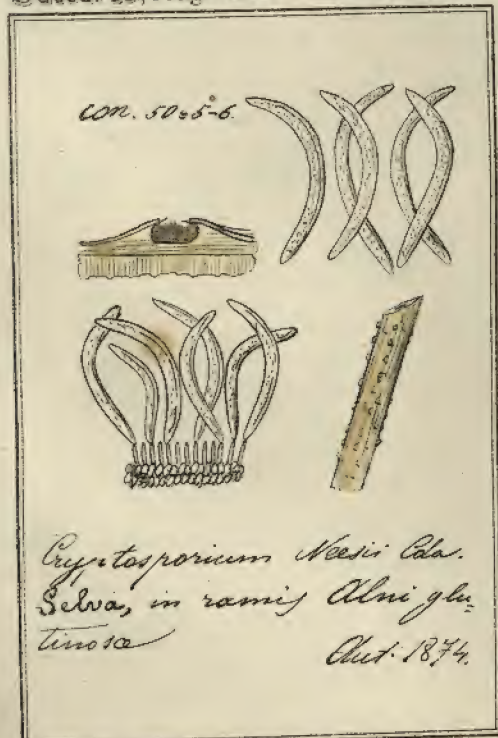 con. 50 = 5-6.
Cryptosporium Neesii Cda.
Selva, in ramis Alni glu=
tinosæ
Aut. 1874.